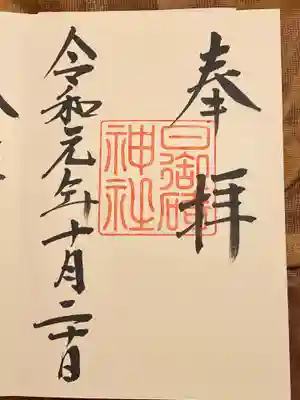 奉拝
日御碕
神社
令和元年十月二十日